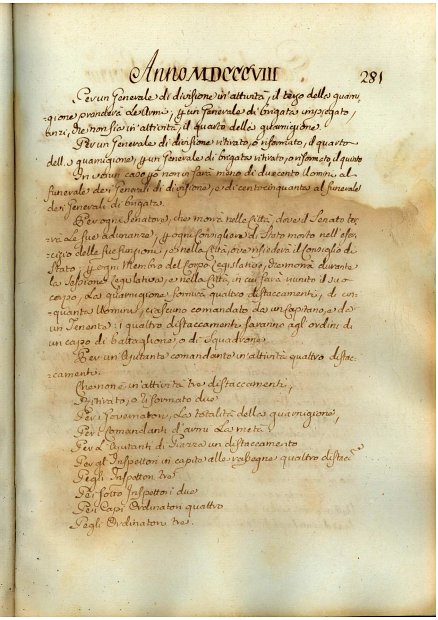 Anno MDCCCVIII 281
Per un Generale di divisione in attività, il terzo della guarni-
gione prenderà le Armi, p un Generale di brigata impiegato,
che non sia in attività, il quarto della guarnigione.
Per un Generale di divisione ritirato, o riformato, il quarto
della guarnigione, p un Generale di brigata ritirato, o riformato, il quinto
In verun caso non si farà meno di duecento Uomini al
funerale dei Generali di divisione, e di centocinquanta al funerale
dei Generali di brigata.
Per ogni Senatore, che morrà nella Città, dove il Senato ter-
rà le sue adunanze, p ogni Consigliere di Stato morto nell eser-
cizio delle sue funzioni, e nella Città, ove risiederà il Consiglio di
Stato, p ogni Membro del Corpo Legislativo, che morrà durante
la Sessione Legislativa, e nella Città, in cui sarà riunito il suo
corpo, La guarnigione fornirà quattro distaccamenti, di cin-
quanta Uomini, ciascuno comandato da un Capitano, e da
un Tenente: i quattro distaccamenti saranno agli ordini di
un capo di battaglione, o di Squadrone.
Per un Ajutante comandante in attività quattro distac-
camenti.
Che non è in attività tre distaccamenti,
Ritirato, o riformato due
Per i Governatori, La totalità della guarnigione,
Per i Comandanti d'armi La metà
Per gl' Ajutanti di Piazza un distaccamento
Per gl' Inspettori in capite alle rassegne quattro distac.ti
Pegli Inspettori tre
Pei sotto Inspettori due
Pei Capi Ordinatori quattro
Pegli Ordinatori tre.